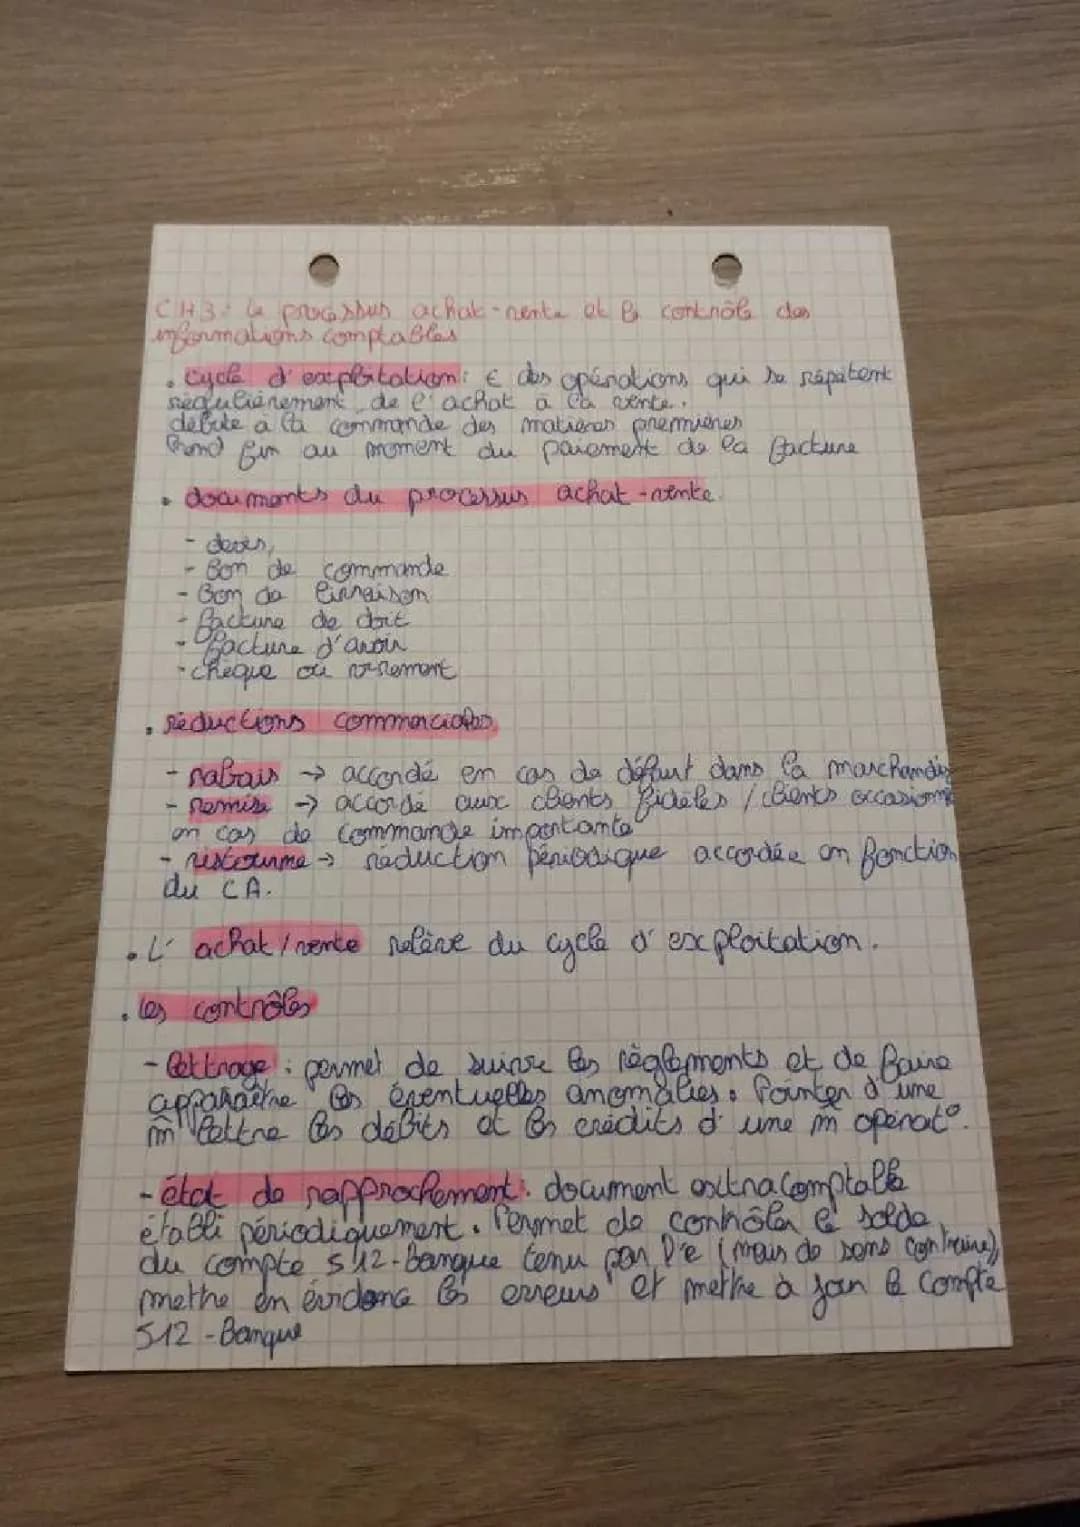 CH3: le processus achat-vente et le contrôle des
informations comptables
. cycle d'exploitation: € des opérations qui se répètent
régulièrement de l'achat à la vente.
débute à la commande des matières premières
Prend fin au moment du paiement de la facture
. documents du processus achat-vente.
- devis,
- Bon de commande
- Bon de livraison
- facture de doit
- facture d'avoir
- chèque ou virement
. réductions commerciales,
- rabais → accordé en cas de défaut dans la marchandis
- remise → accordé aux clients fidèles / clients occasionne
en cas de commande importante
- ristourne → réduction périodique accordée en fonction
du CA.
. L' achat/vente relève du cycle d'exploitation.
. les contrôles
- lettrage : permet de suivre les règlements et de faire
apparaître les éventuelles anomalies. Pointer d'une
m̂ lettre les débits et les crédits d'une m̂ opérat°.
- état de rapprochement: document extracomptable
établi périodiquement. Permet de contrôler le solde
du compte 512-Banque tenu par l'e (mais de sens contraire),
mettre en évidence les erreurs et mettre à jour le compte
512-Banque